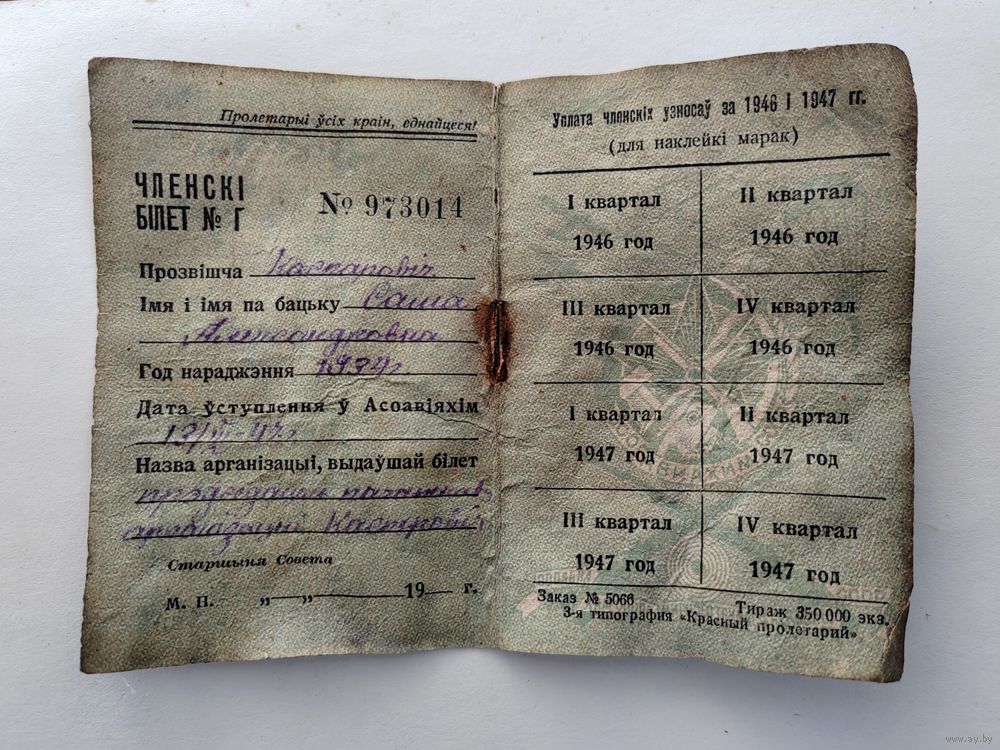 Пролетарыі ўсіх краін, еднайцеся!
ЧЛЕНСКІ
БІЛЕТ № Г
№ 973014
Прозвішча Каспаровіч
Імя і імя па бацьку Саша
Александровна
Год нараджэння 1934 г.
Дата ўступлення ў Асоавіяхім
Назва арганізацыі, выдаўшай білет
Старшыня Совета
М. П. „ — ” — 19 — г.
Уплата членскіх узносаў за 1946 і 1947 гг.
(для наклейкі марак)
I квартал
1946 год
II квартал
1946 год
III квартал
1946 год
IV квартал
1946 год
I квартал
1947 год
II квартал
1947 год
III квартал
1947 год
IV квартал
1947 год
Заказ № 5066
Тираж 350 000 экз.
3-я типография «Красный пролетарий»
www.ay.by